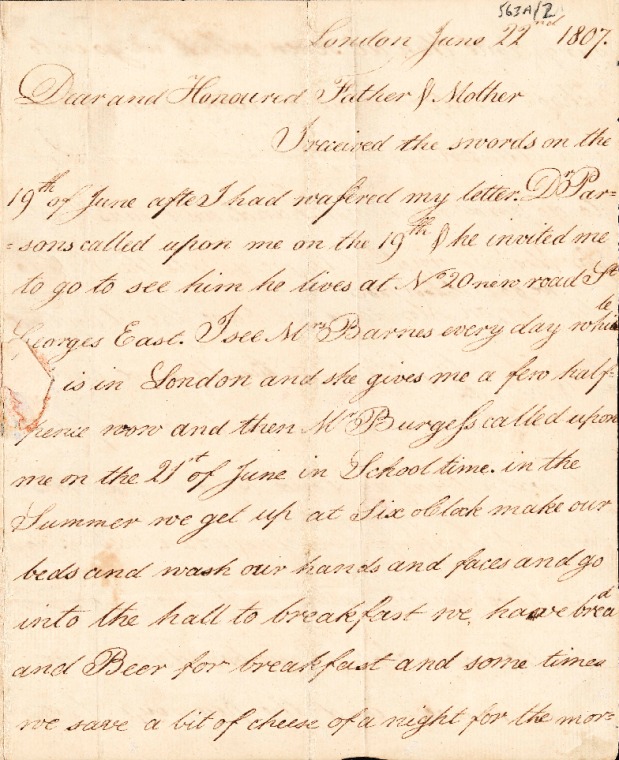 563A/2
London June 22nd 1807.
Dear and Honoured Father & Mother
I received the swords on the
19th of June after I had wafered my letter. Dr Par=
=sons called upon me on the 19th & he invited me
to go to see him he lives at No 20 new road St
Georges East. I see Mrs Barnes every day while
is in London and she gives me a few half=
pence now and then Mr Burgess called upon
me on the 21st of June in School time. in the
Summer we get up at Six oClock make our
beds and wash our hands and faces and go
into the hall to breakfast we have bread
and Beer for breakfast and some times
we save a bit of cheese of a night for the mor=